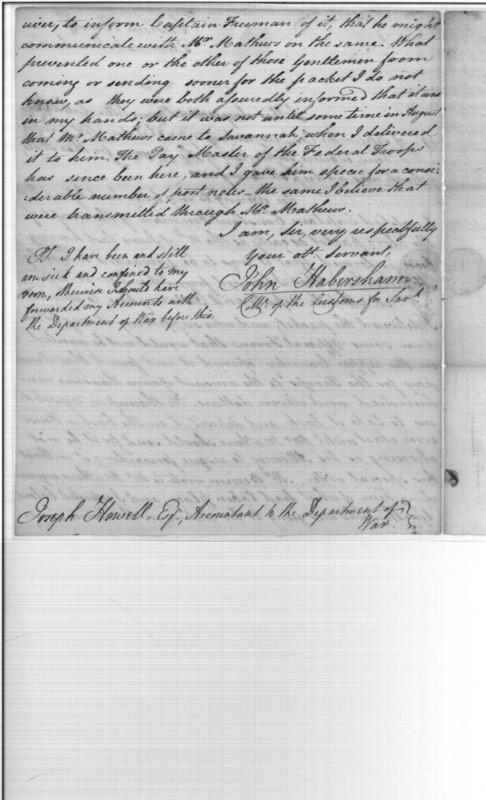 iver, to inform Captain Freeman of it, that he might
communicate with Mr. Mathews on the same. What
prevented one or the other of those Gentlemen from
coming or sending sooner for the packet I do not
know, as they were both assuredly informed that it was
in my hands; but it was not until some time in August
that Mr. Mathews came to Savannah, when I delivered
it to him. The Pay Master of the Federal Troops
has since been here, and I gave him specie for a consi:
:derable number of post notes the same I believe that
were transmitted through Mr. Mathews.
I am, Sir, very respectfully
Your obt. Servant,
John Habersham
Collr. of the Customs for Savh.
PS. I have been and still
am sick and confined to my
room, otherwise I should have
forwarded my Accounts with
the Department of War before this.
Joseph Howell, Esqr., Accountant to the Department of
War.